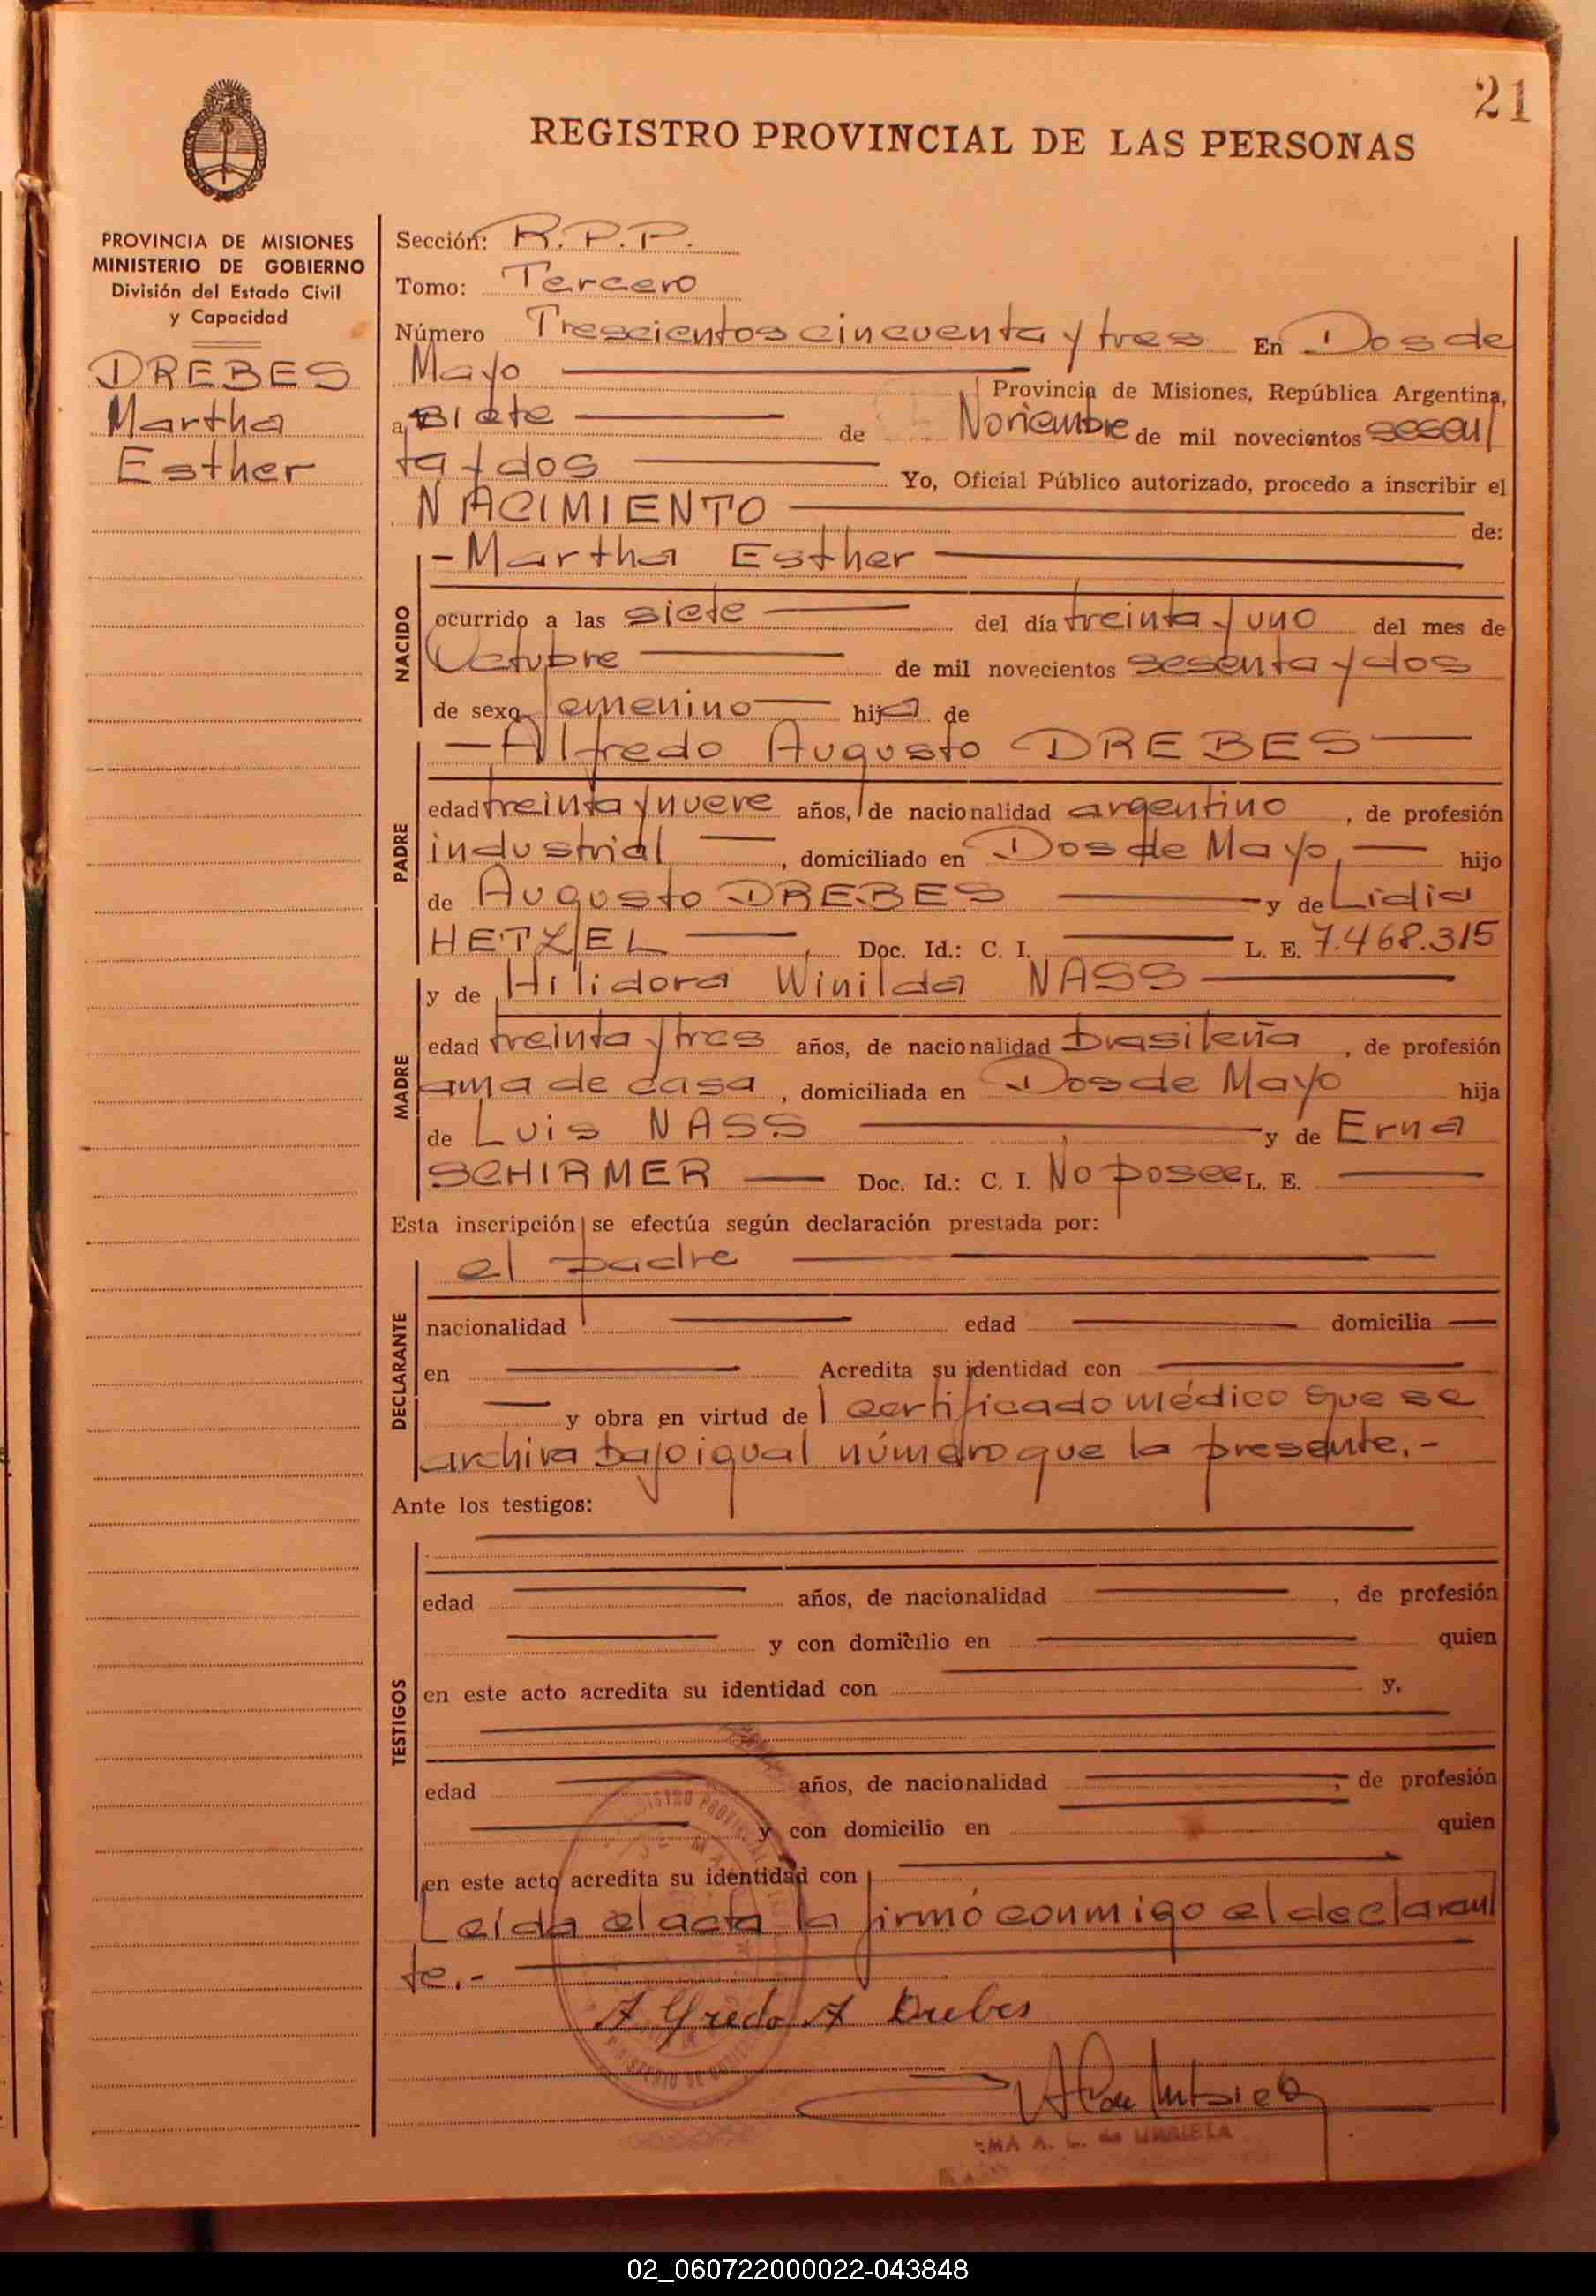 21
REGISTRO PROVINCIAL DE LAS PERSONAS
PROVINCIA DE MISIONES
MINISTERIO DE GOBIERNO
División del Estado Civil
y Capacidad
DREBES
Martha
Esther
Sección: R.P.P.
Tomo: Tercero
Número Trescientos cincuenta y tres En Dos de
Mayo Provincia de Misiones, República Argentina,
a, siete de Noviembre de mil novecientos sesen
ta y dos Yo, Oficial Público autorizado, procedo a inscribir el
NACIMIENTO de:
NACIDO
-Martha Esther
ocurrido a las siete del día treinta y uno del mes de
Octubre de mil novecientos sesenta y dos
de sexo femenino hija de
PADRE
-Alfredo Augusto DREBES
edad treinta y nueve años, de nacionalidad argentino, de profesión
industrial, domiciliado en Dos de Mayo, hijo
de Augusto DREBES y de Lidia
HETZEL Doc. Id.: C. I. L. E. 7.468.315
MADRE
y de Hilidora Winilda NASS
edad treinta y tres años, de nacionalidad brasileña, de profesión
ama de casa, domiciliada en Dos de Mayo hija
de Luis NASS y de Erna
SCHIRMER Doc. Id.: C. I. No posee L. E.
Esta inscripción se efectúa según declaración prestada por:
DECLARANTE
el padre
nacionalidad edad domicilia
en Acredita su identidad con
y obra en virtud del certificado médico que se
archiva bajo igual número que la presente.-
Ante los testigos:
TESTIGOS
edad años, de nacionalidad, de profesión
y con domicilio en quien
en este acto acredita su identidad con y,
edad años, de nacionalidad, de profesión
y con domicilio en quien
en este acto acredita su identidad con
Leída el acta la firmó conmigo el declaran
te.-
Alfredo A Drebes
MA A. C. de UMBIELA
02_060722000022-043848